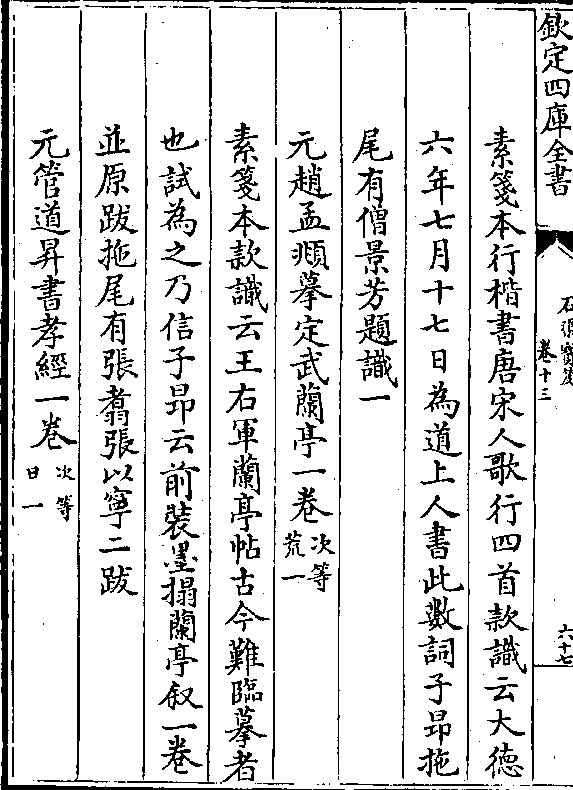 欽定四庫全書
石渠寶笈
卷十三
六十七
素箋本行楷書唐宋人歌行四首款識云大德
六年七月十七日為道上人書此數詞子昂拖
尾有僧景芳題識一
元趙孟頫摹定武蘭亭一卷次等荒一
素箋本款識云王右軍蘭亭帖古今難臨摹者
也試為之乃信子昂云前裝墨搨蘭亭叙一卷
並原跋拖尾有張翥張以寧二跋
元管道昇書孝經一卷次等日一